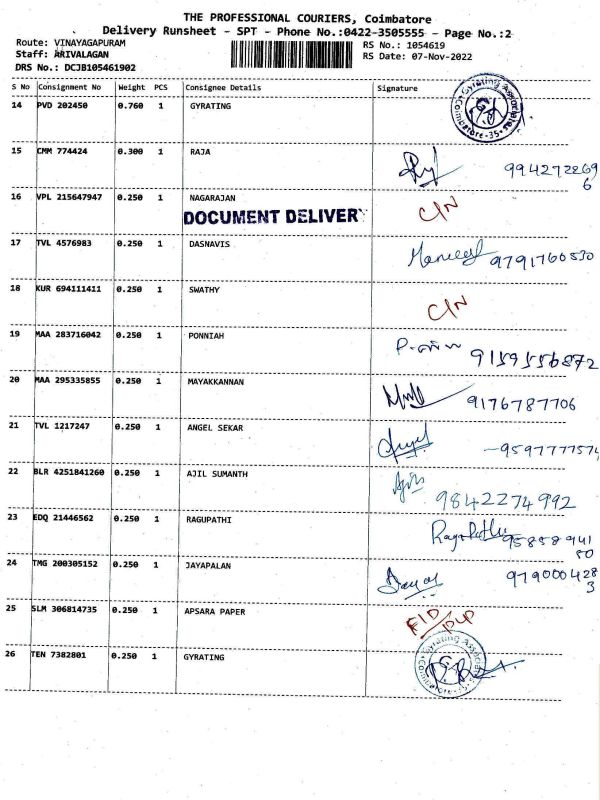 THE PROFESSIONAL COURIERS, Coimbatore
Delivery Runsheet - SPT - Phone No.:0422-3505555 - Page No.:2
Route: VINAYAGAPURAM
Staff: ARIVALAGAN
DRS No.: DCJB105461902
RS No.: 1054619
RS Date: 07-Nov-2022
S No Consignment No Weight PCS Consignee Details Signature
14 PVD 202450 0.760 1 GYRATING
Gyrating Associates Coimbatore-35
15 CMM 774424 0.300 1 RAJA
9942722696
16 VPL 215647947 0.250 1 NAGARAJAN C/N
DOCUMENT DELIVERY
17 TVL 4576983 0.250 1 DASNAVIS
9791760530
18 KUR 694111411 0.250 1 SWATHY
C/N
19 MAA 283716042 0.250 1 PONNIAH
9159556872
20 MAA 295335855 0.250 1 MAYAKKANNAN
9176787706
21 TVL 1217247 0.250 1 ANGEL SEKAR
22 BLR 4251841260 0.250 1 AJIL SUMANTH
9842274992
23 EDQ 21446562 0.250 1 RAGUPATHI
Ragupathi 9585894180
24 TMG 200305152 0.250 1 JAYAPALAN
9790004283
25 SLM 306814735 0.250 1 APSARA PAPER
26 TEN 7382801 0.250 1 GYRATING
Gyrating Associates Coimbatore-35